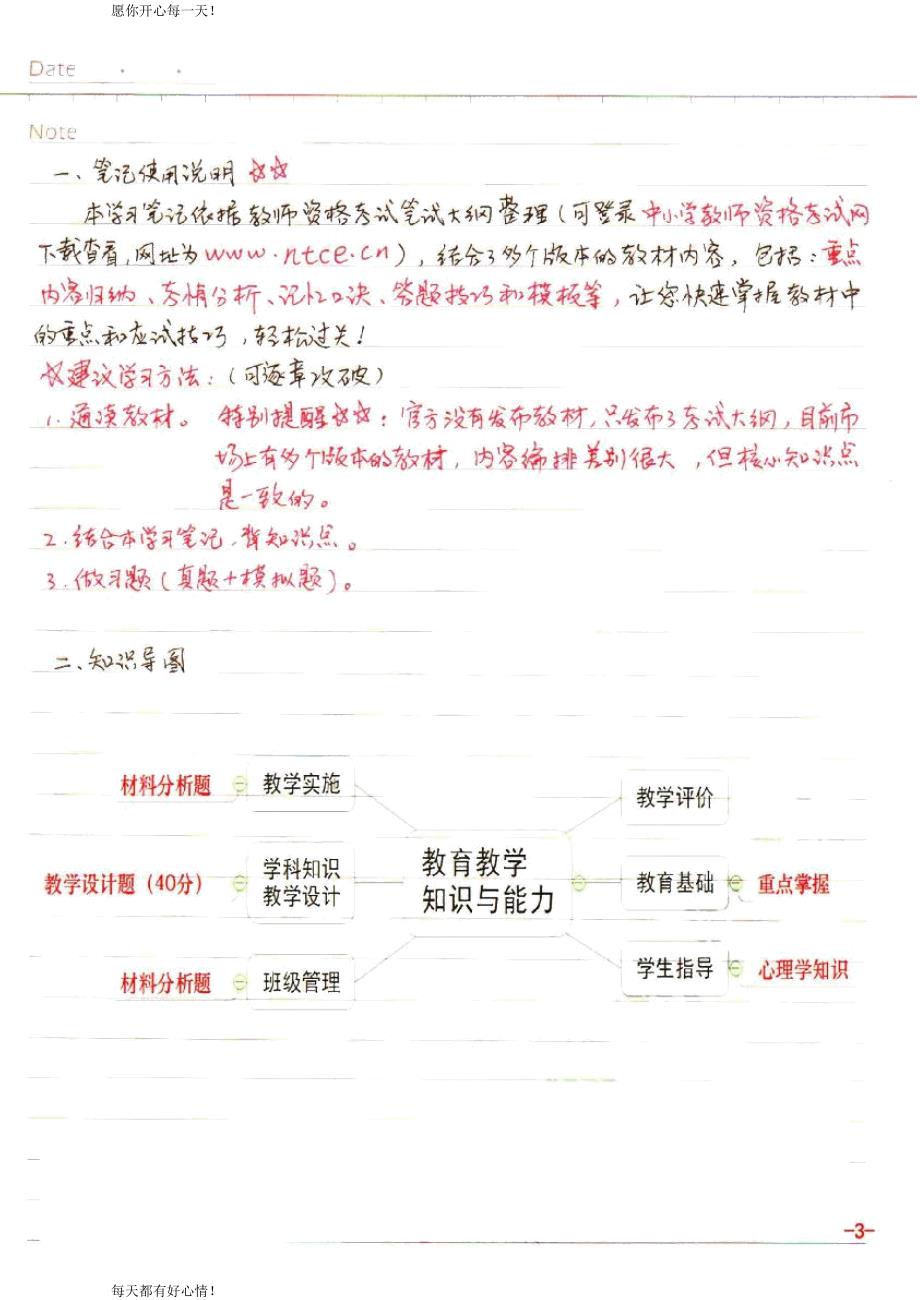 愿你开心每一天！
Date
Note
一、笔记使用说明 ☆☆
本学习笔记依据教师资格考试笔试大纲整理（可登录中小学教师资格考试网
下载查看，网址为www.ntce.cn），结合了多个版本的教材内容，包括：重点
内容归纳、考情分析、记忆口诀、答题技巧和模板等，让您快速掌握教材中
的重点和应试技巧，轻松过关！
☆建议学习方法：（可逐章攻破）
1.通读教材。 特别提醒☆☆：官方没有发布教材，只发布了考试大纲，目前市
场上有多个版本的教材，内容编排差别很大，但核心知识点
是一致的。
2.结合本学习笔记，背知识点。
3.做习题（真题+模拟题）。
二、知识导图
材料分析题 教学实施 教学评价
教学设计题（40分） 学科知识 教育教学 教育基础 重点掌握
教学设计 知识与能力
材料分析题 班级管理 学生指导 心理学知识
-3-
每天都有好心情！